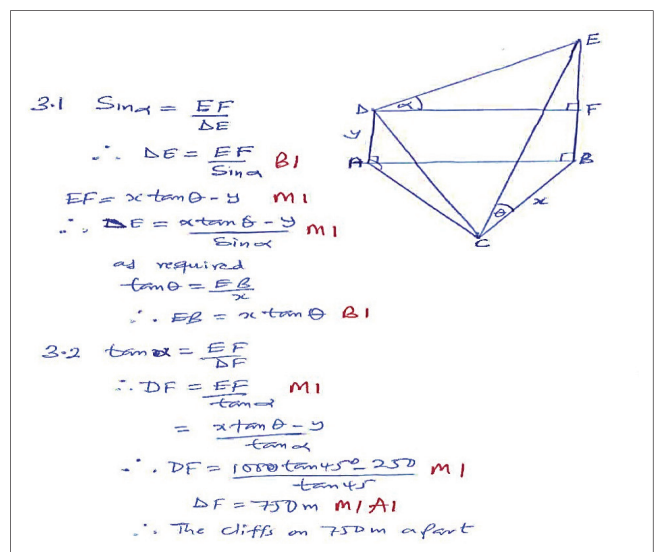 3.1 Sinα = EF/DE
∴ DE = EF/Sinα B1
EF = x tanθ - y M1
∴ DE = x tanθ - y/Sinα M1
as required
tanθ = EB/x
∴ EB = x tanθ B1
3.2 tanα = EF/DF
∴ DF = EF/tanα M1
= x tanθ - y/tanα
∴ DF = 1000 tan45° - 250/tan45 M1
DF = 750m M1A1
∴ The cliffs on 750m apart
E
D α F
y
A B
θ x
C